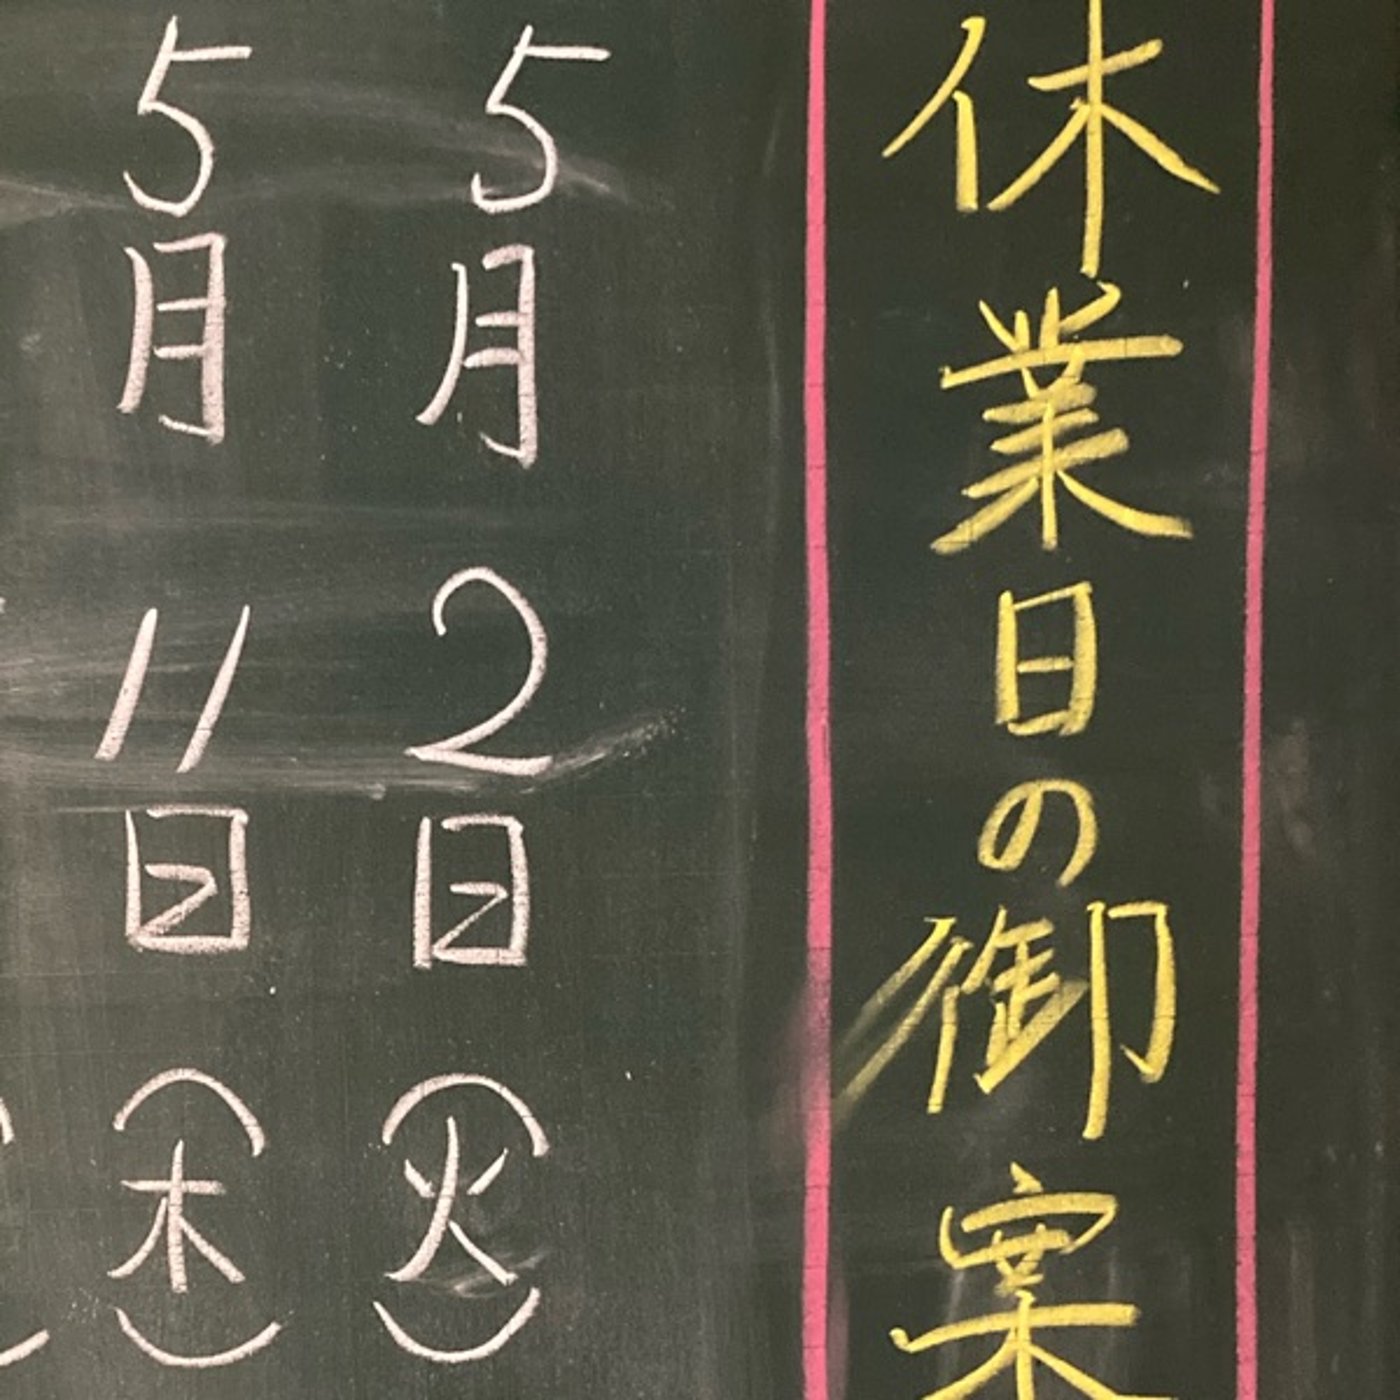 休業日の御案
5月2日(火)
5月11日(木)